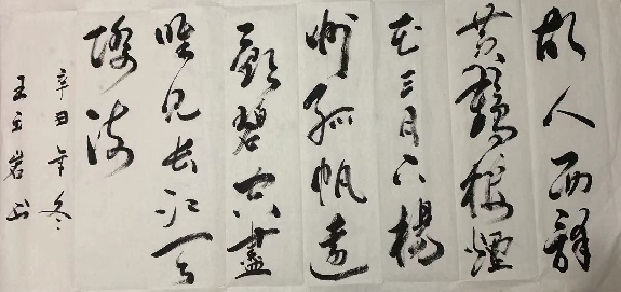 故人西辭
黄鶴樓煙
花三月下楊
州孤帆遠
影碧空盡
唯见长江天
際流
辛丑年冬
王玉岩书